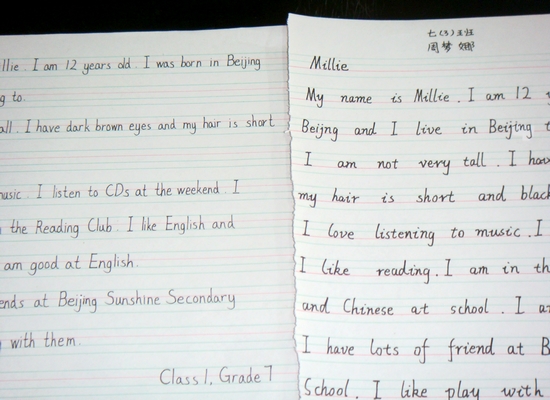 . I am 12 years old. I was born in Beijing
to.
. I have dark brown eyes and my hair is short
. I listen to CDs at the weekend. I
the Reading Club. I like English and
am good at English.
at Beijing Sunshine Secondary
with them.
Class 1, Grade 7
七(3)班
周梦娜
Millie
My name is Millie. I am 12
Beijng and I live in Beijing
I am not very tall. I
my hair is short and
I love listening to music. I
I like reading. I am in
and Chinese at school. I
I have lots of friend at
School. I like play with